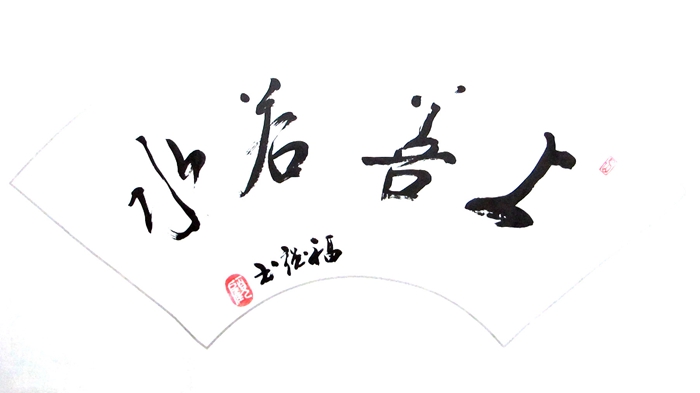 上善若水
福强书